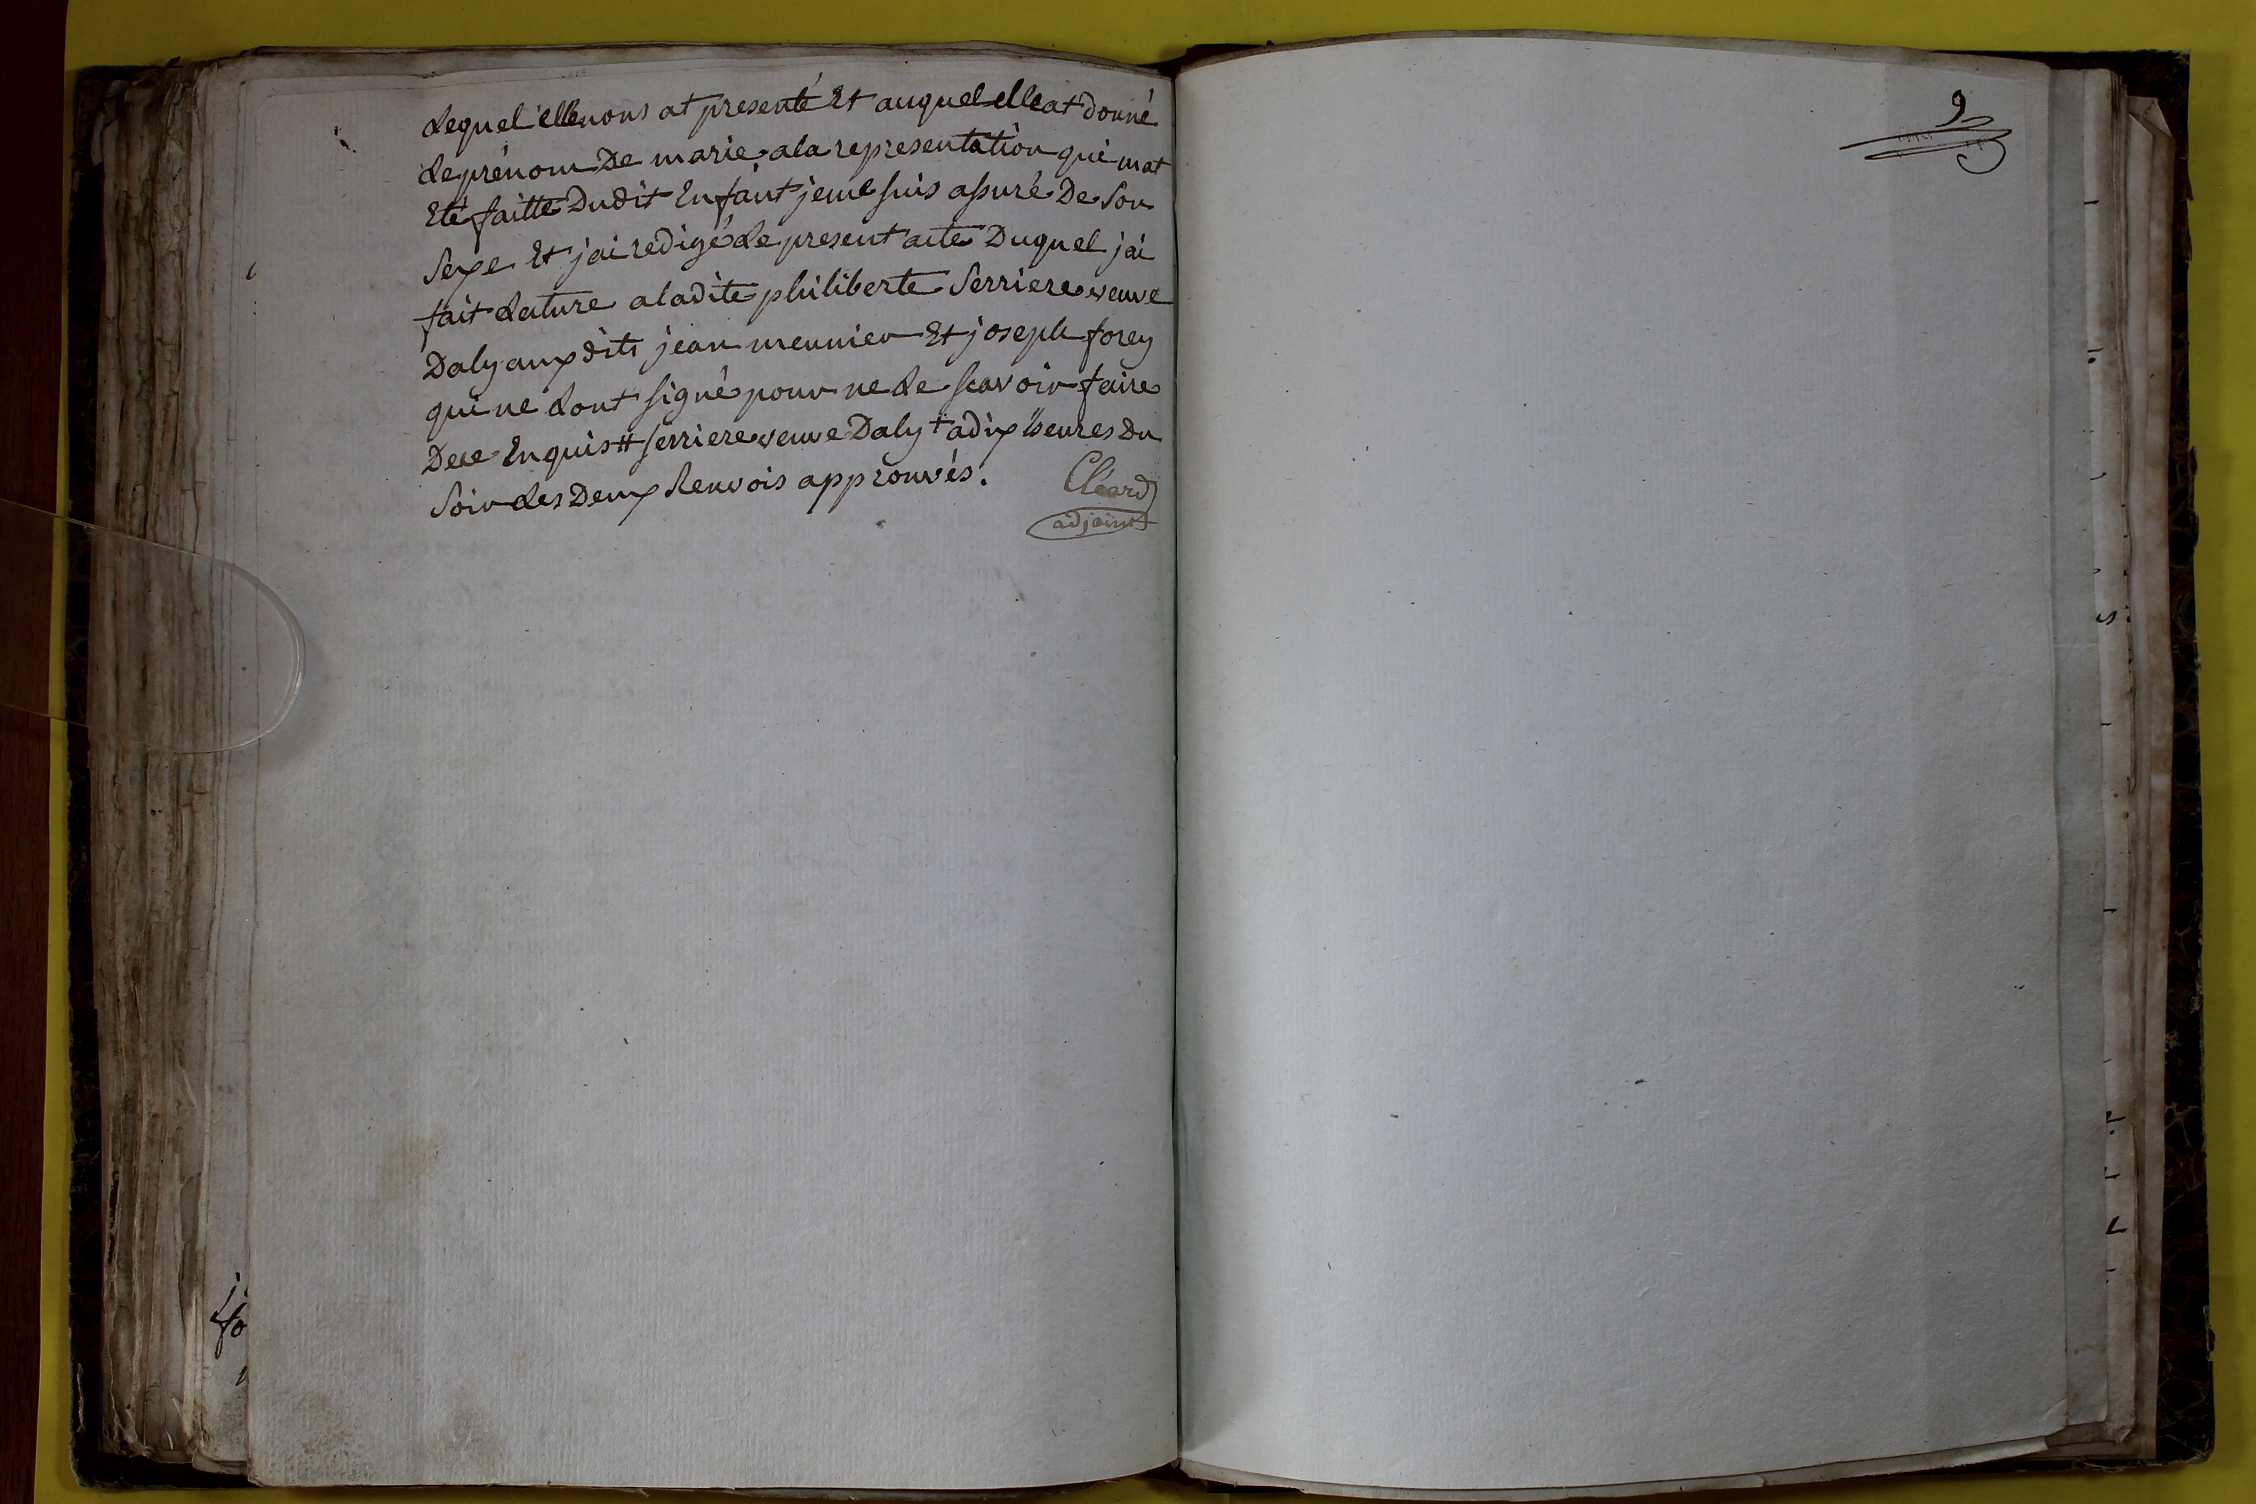 Lequel elle nous at presenté Et auquel elle at donné
Le prénom De marie, a la representation qui mat
Eté faitte Dudit Enfant je me suis assuré De son
Sexe Et j'ai redigé Le present acte Duquel j'ai
fait Lecture a ladite philiberte Serriere veuve
Daly aux dits jean meunier Et joseph forey
qui ne Lont signé pour ne Le scavoir faire
De ce Enquis # serriere veuve Daly + a dix heures Du
Soir Les Deux Renvois approuvés.
Cléard
adjoint
9